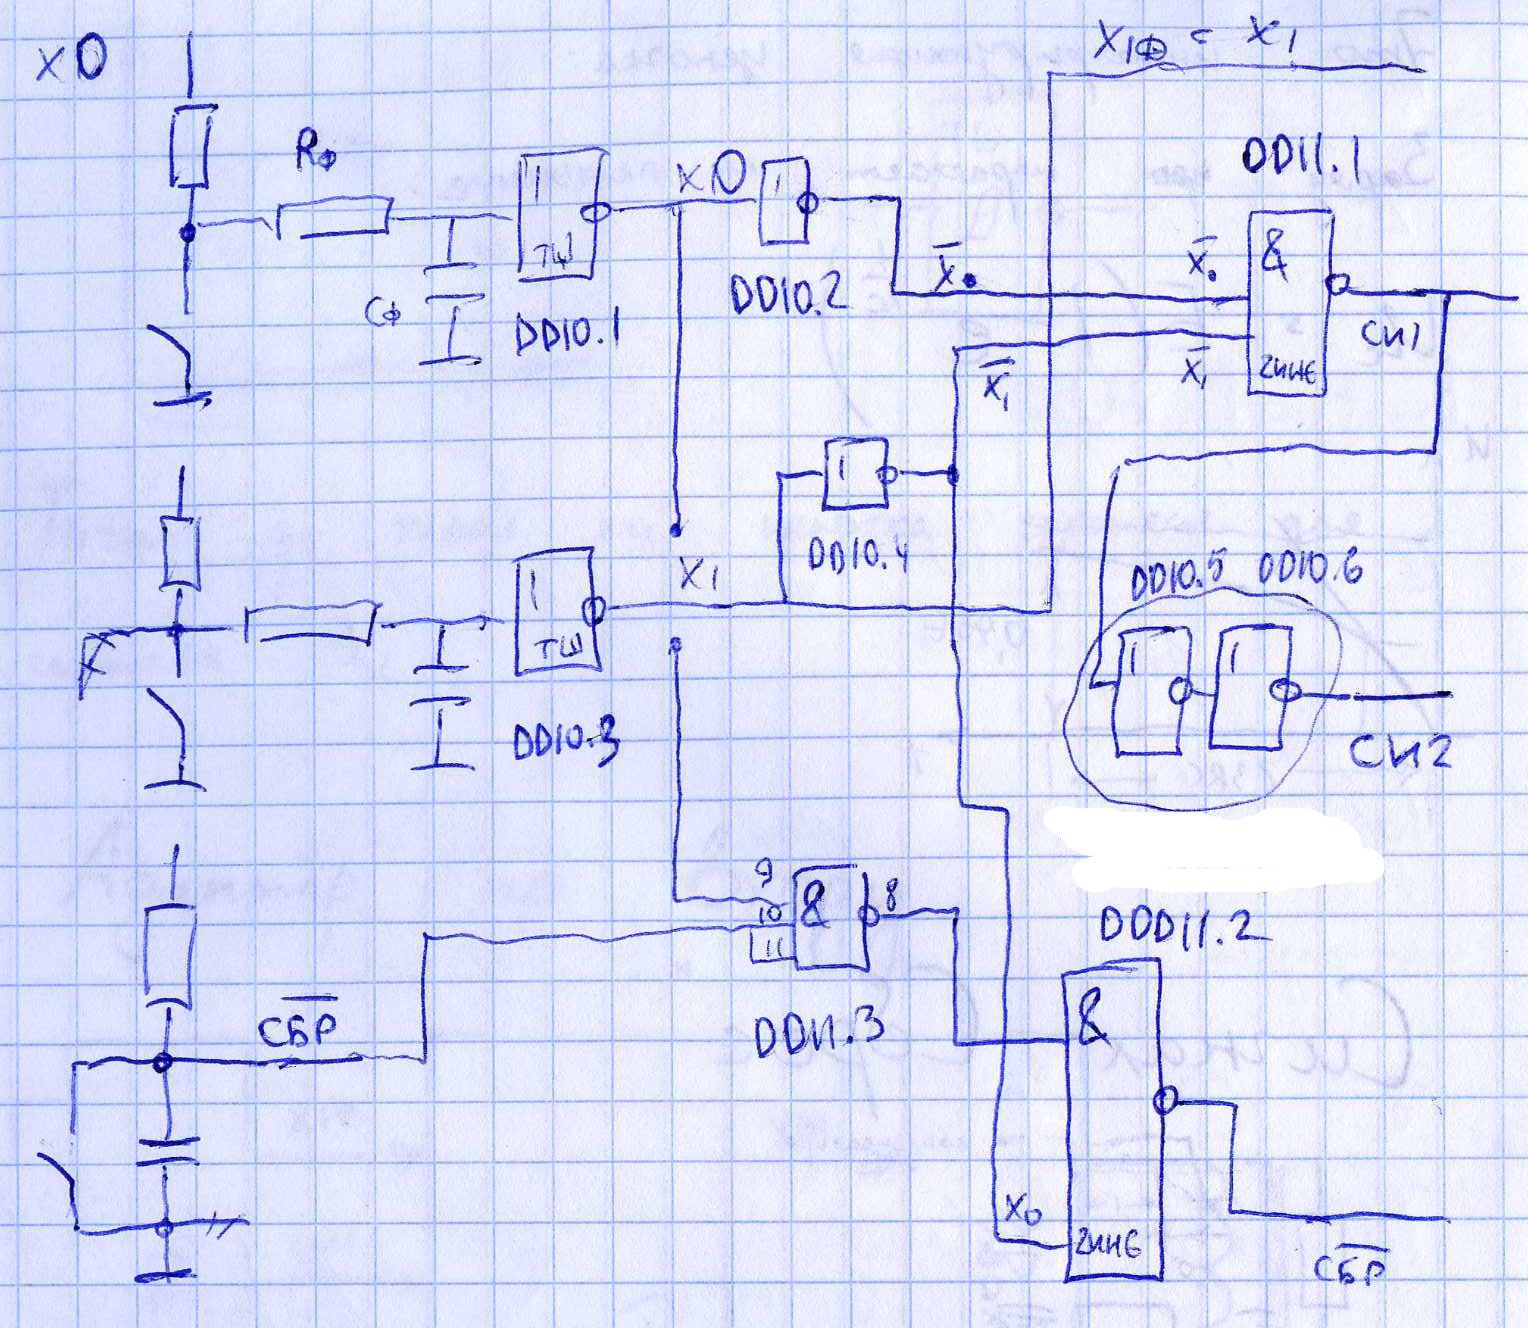 X0
X1Ф = X1
RФ
1
ТШ
X0
1
DD11.1
X̅0
X̅0
&
CФ
DD10.1
DD10.2
СИ1
X̅1
X̅1
2ИНЕ
1
DD10.4
X1
DD10.5 DD10.6
1
ТШ
1
1
DD10.3
СИ2
9
10
11
&
8
DDD11.2
С̅Б̅Р̅
DD11.3
&
X0
2ИНЕ
С̅Б̅Р̅